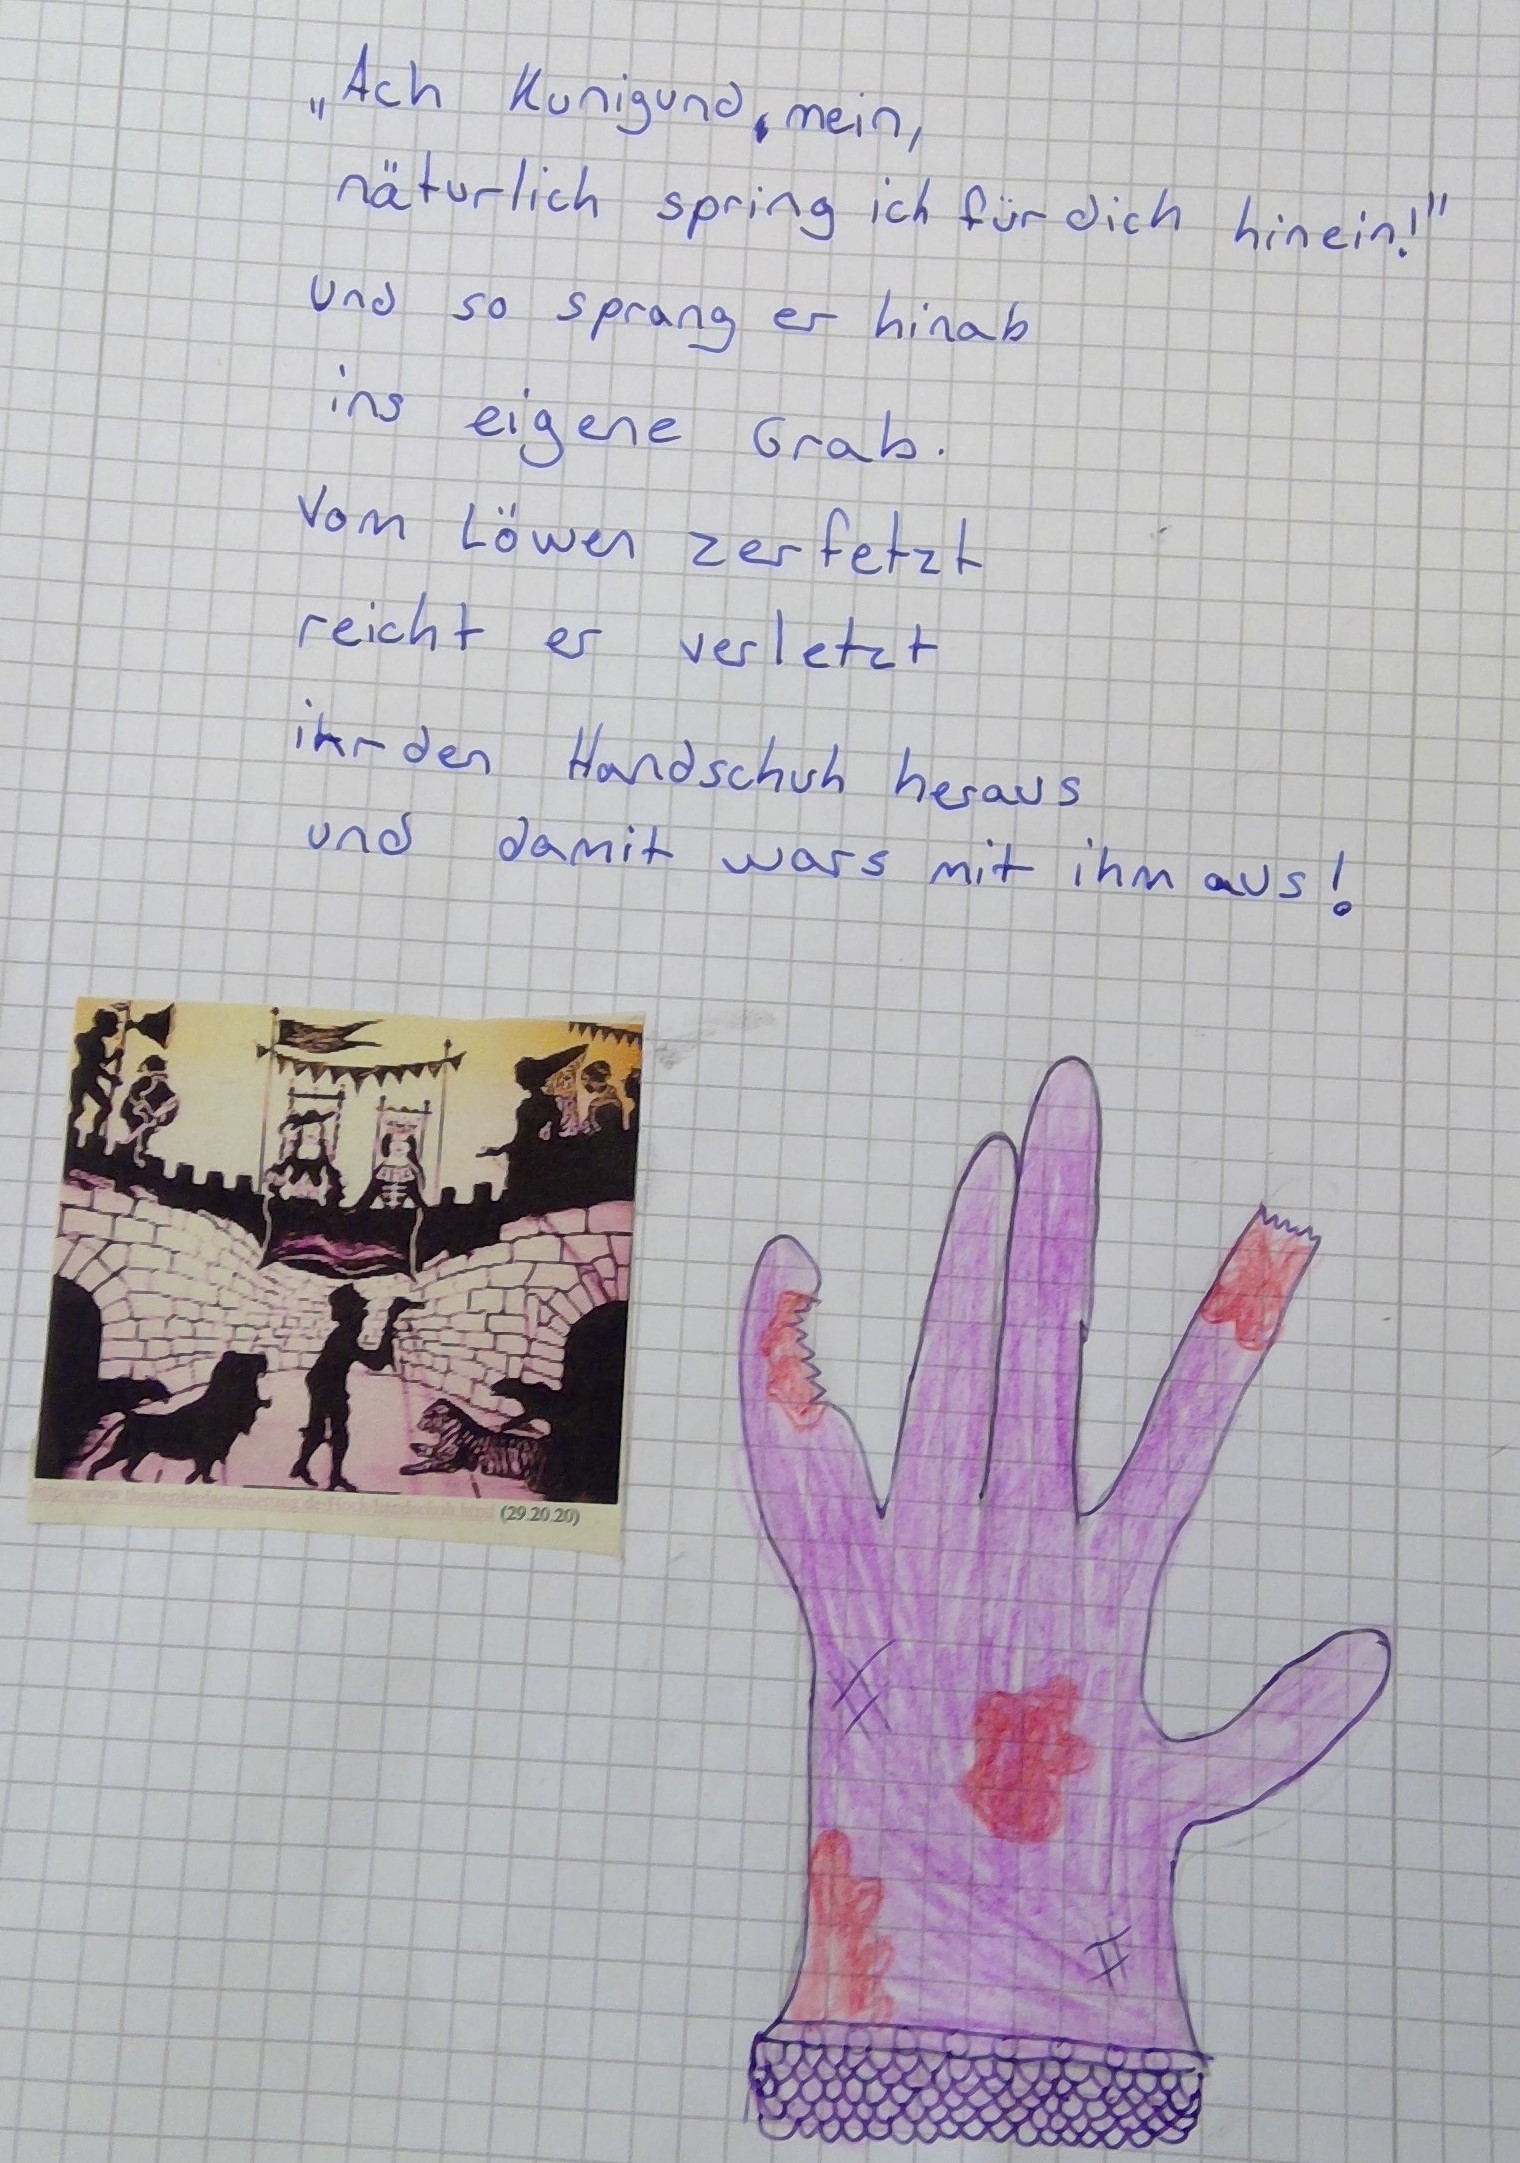 „Ach Kunigund, mein,
näturlich spring ich für dich hinein!"
und so sprang er hinab
ins eigene Grab.
Vom Löwen zerfetzt
reicht er verletzt
ihr den Handschuh heraus
und damit wars mit ihm aus!
(29.20.20)